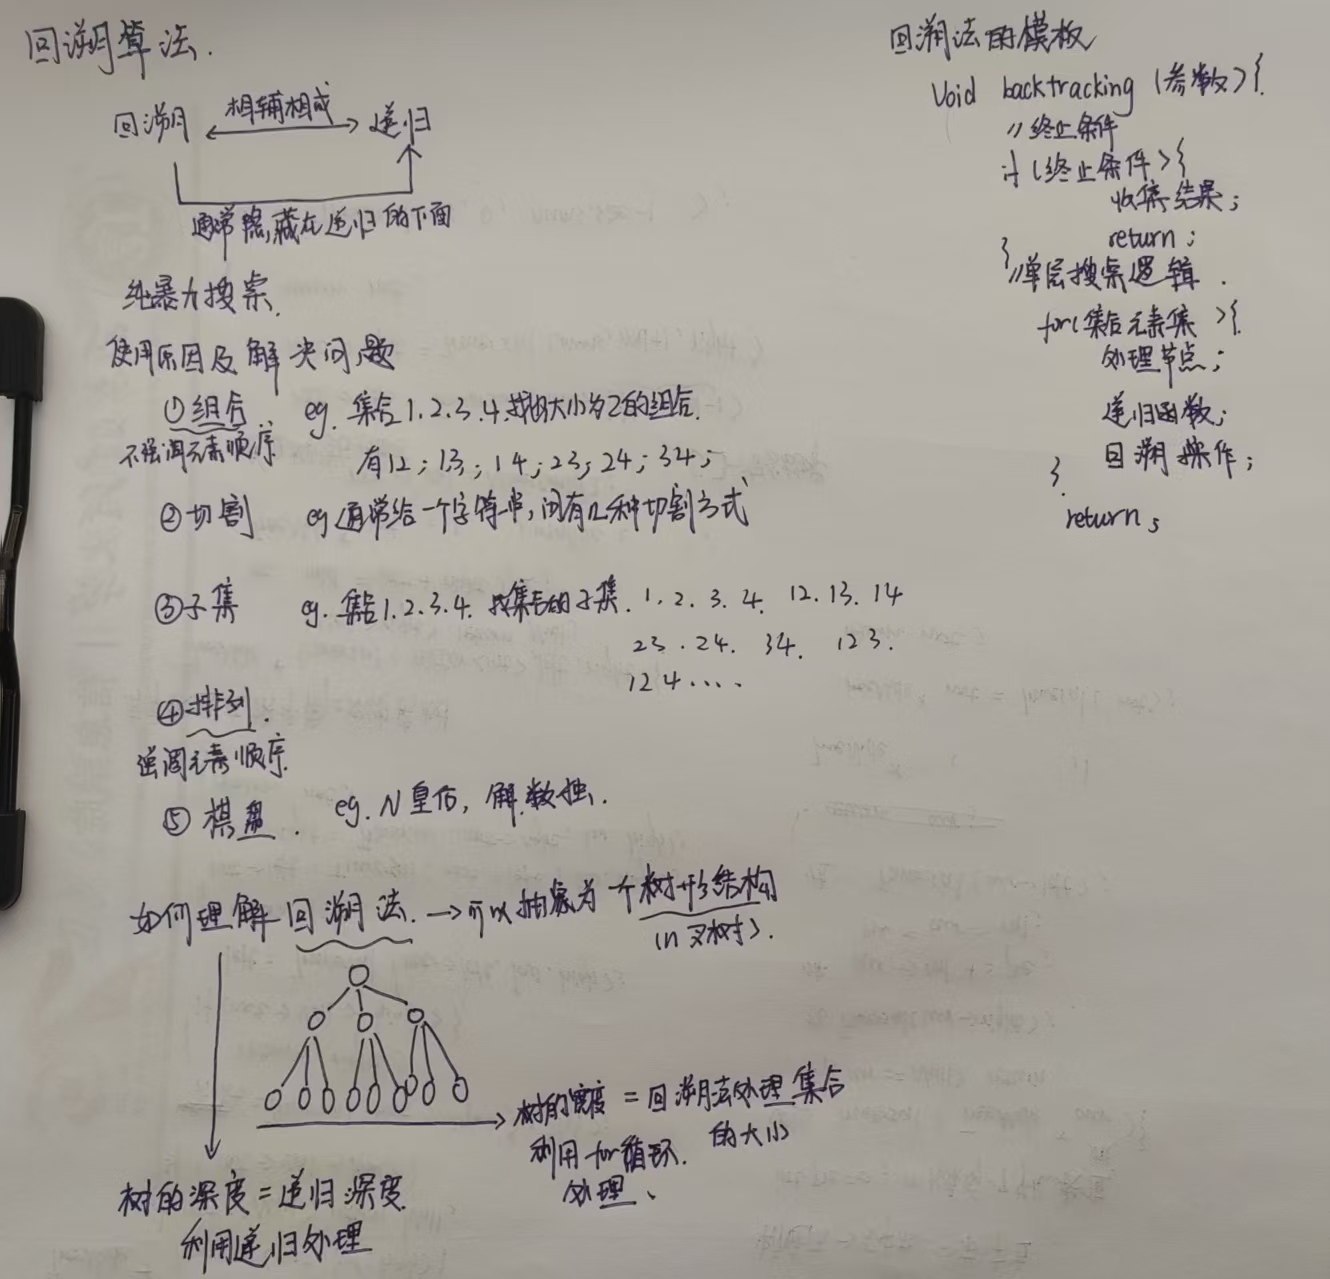 回溯算法.
回溯 相辅相成 递归
通常隐藏在递归的下面
纯暴力搜索.
使用原因及解决问题
①组合. eg. 集合1.2.3.4.找出大小为2的组合.
不强调元素顺序 有12;13;14;23;24;34;
②切割 eg 通常给一个字符串,问有几种切割方式
③子集 eg. 集合1.2.3.4. 找集合的子集. 1. 2. 3. 4. 12. 13. 14
23. 24. 34. 123.
124....
④排列.
强调元素顺序.
⑤ 棋盘. eg. N皇后, 解数独.
如何理解回溯法. → 可以抽象为一个树形结构
(n叉树).
树的宽度 = 回溯法处理集合
的大小
利用for循环.
处理、
树的深度 = 递归深度.
利用递归处理
回溯法的模板
Void backtracking (参数) {.
//终止条件
if (终止条件) {
收集结果;
return;
}
//单层搜索逻辑.
for( 集合元素集 ) {.
处理节点;
递归函数;
回溯操作;
}.
return;